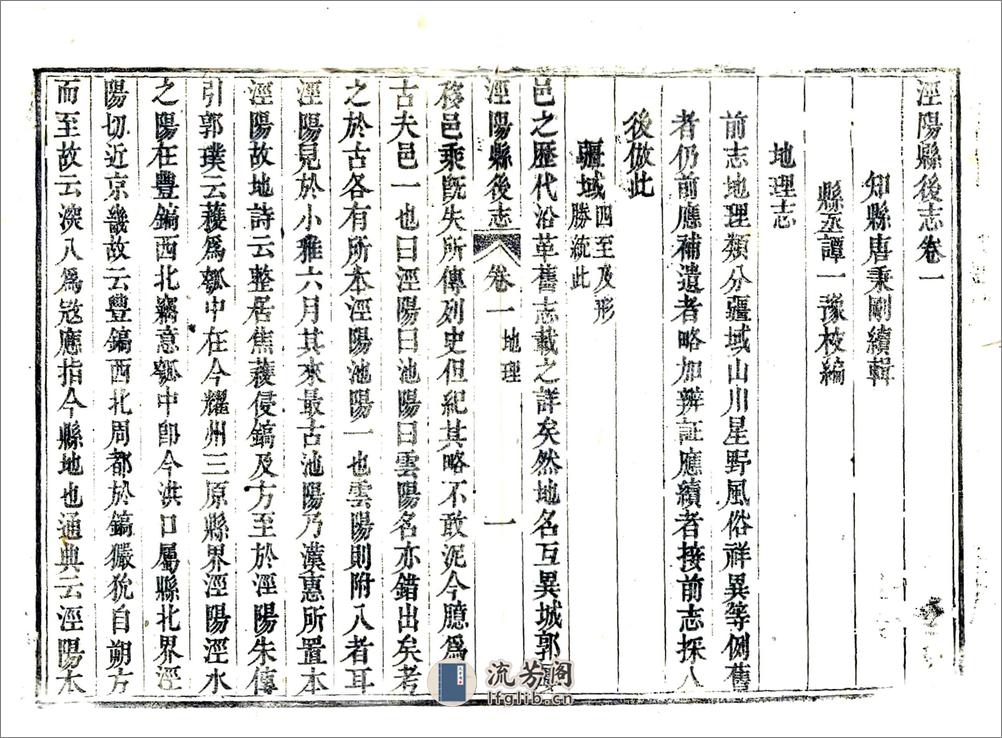 涇陽縣後志卷一
知縣唐秉剛續輯
縣丞譚一豫校編
地理志
前志地理類分疆域山川星野風俗祥異等例舊
者仍前應補遺者略加辨証應續者接前志採入
後倣此
疆域四至及形勝統此
邑之歷代沿革舊志載之詳矣然地名互異城郭
涇陽縣後志 卷一 地理 一
移邑乘旣失所傳列史但紀其略不敢泥今臆爲
古夫邑一也曰涇陽曰池陽曰雲陽名亦錯出矣考
之於古各有所本涇陽池陽一也雲陽則附入者耳
涇陽見於小雅六月其來最古池陽乃漢惠所置本
涇陽故地詩云整居焦穫侵鎬及方至於涇陽朱傳
引郭璞云穫爲瓠中在今耀州三原縣界涇陽涇水
之陽在豐鎬西北竊意瓠中卽今洪口屬縣北界涇
陽切近京畿故云豐鎬西北周都於鎬玁狁自朔方
而至故云深入爲寇應指今縣地也通典云涇陽本
流芳阁
lfglib.cn